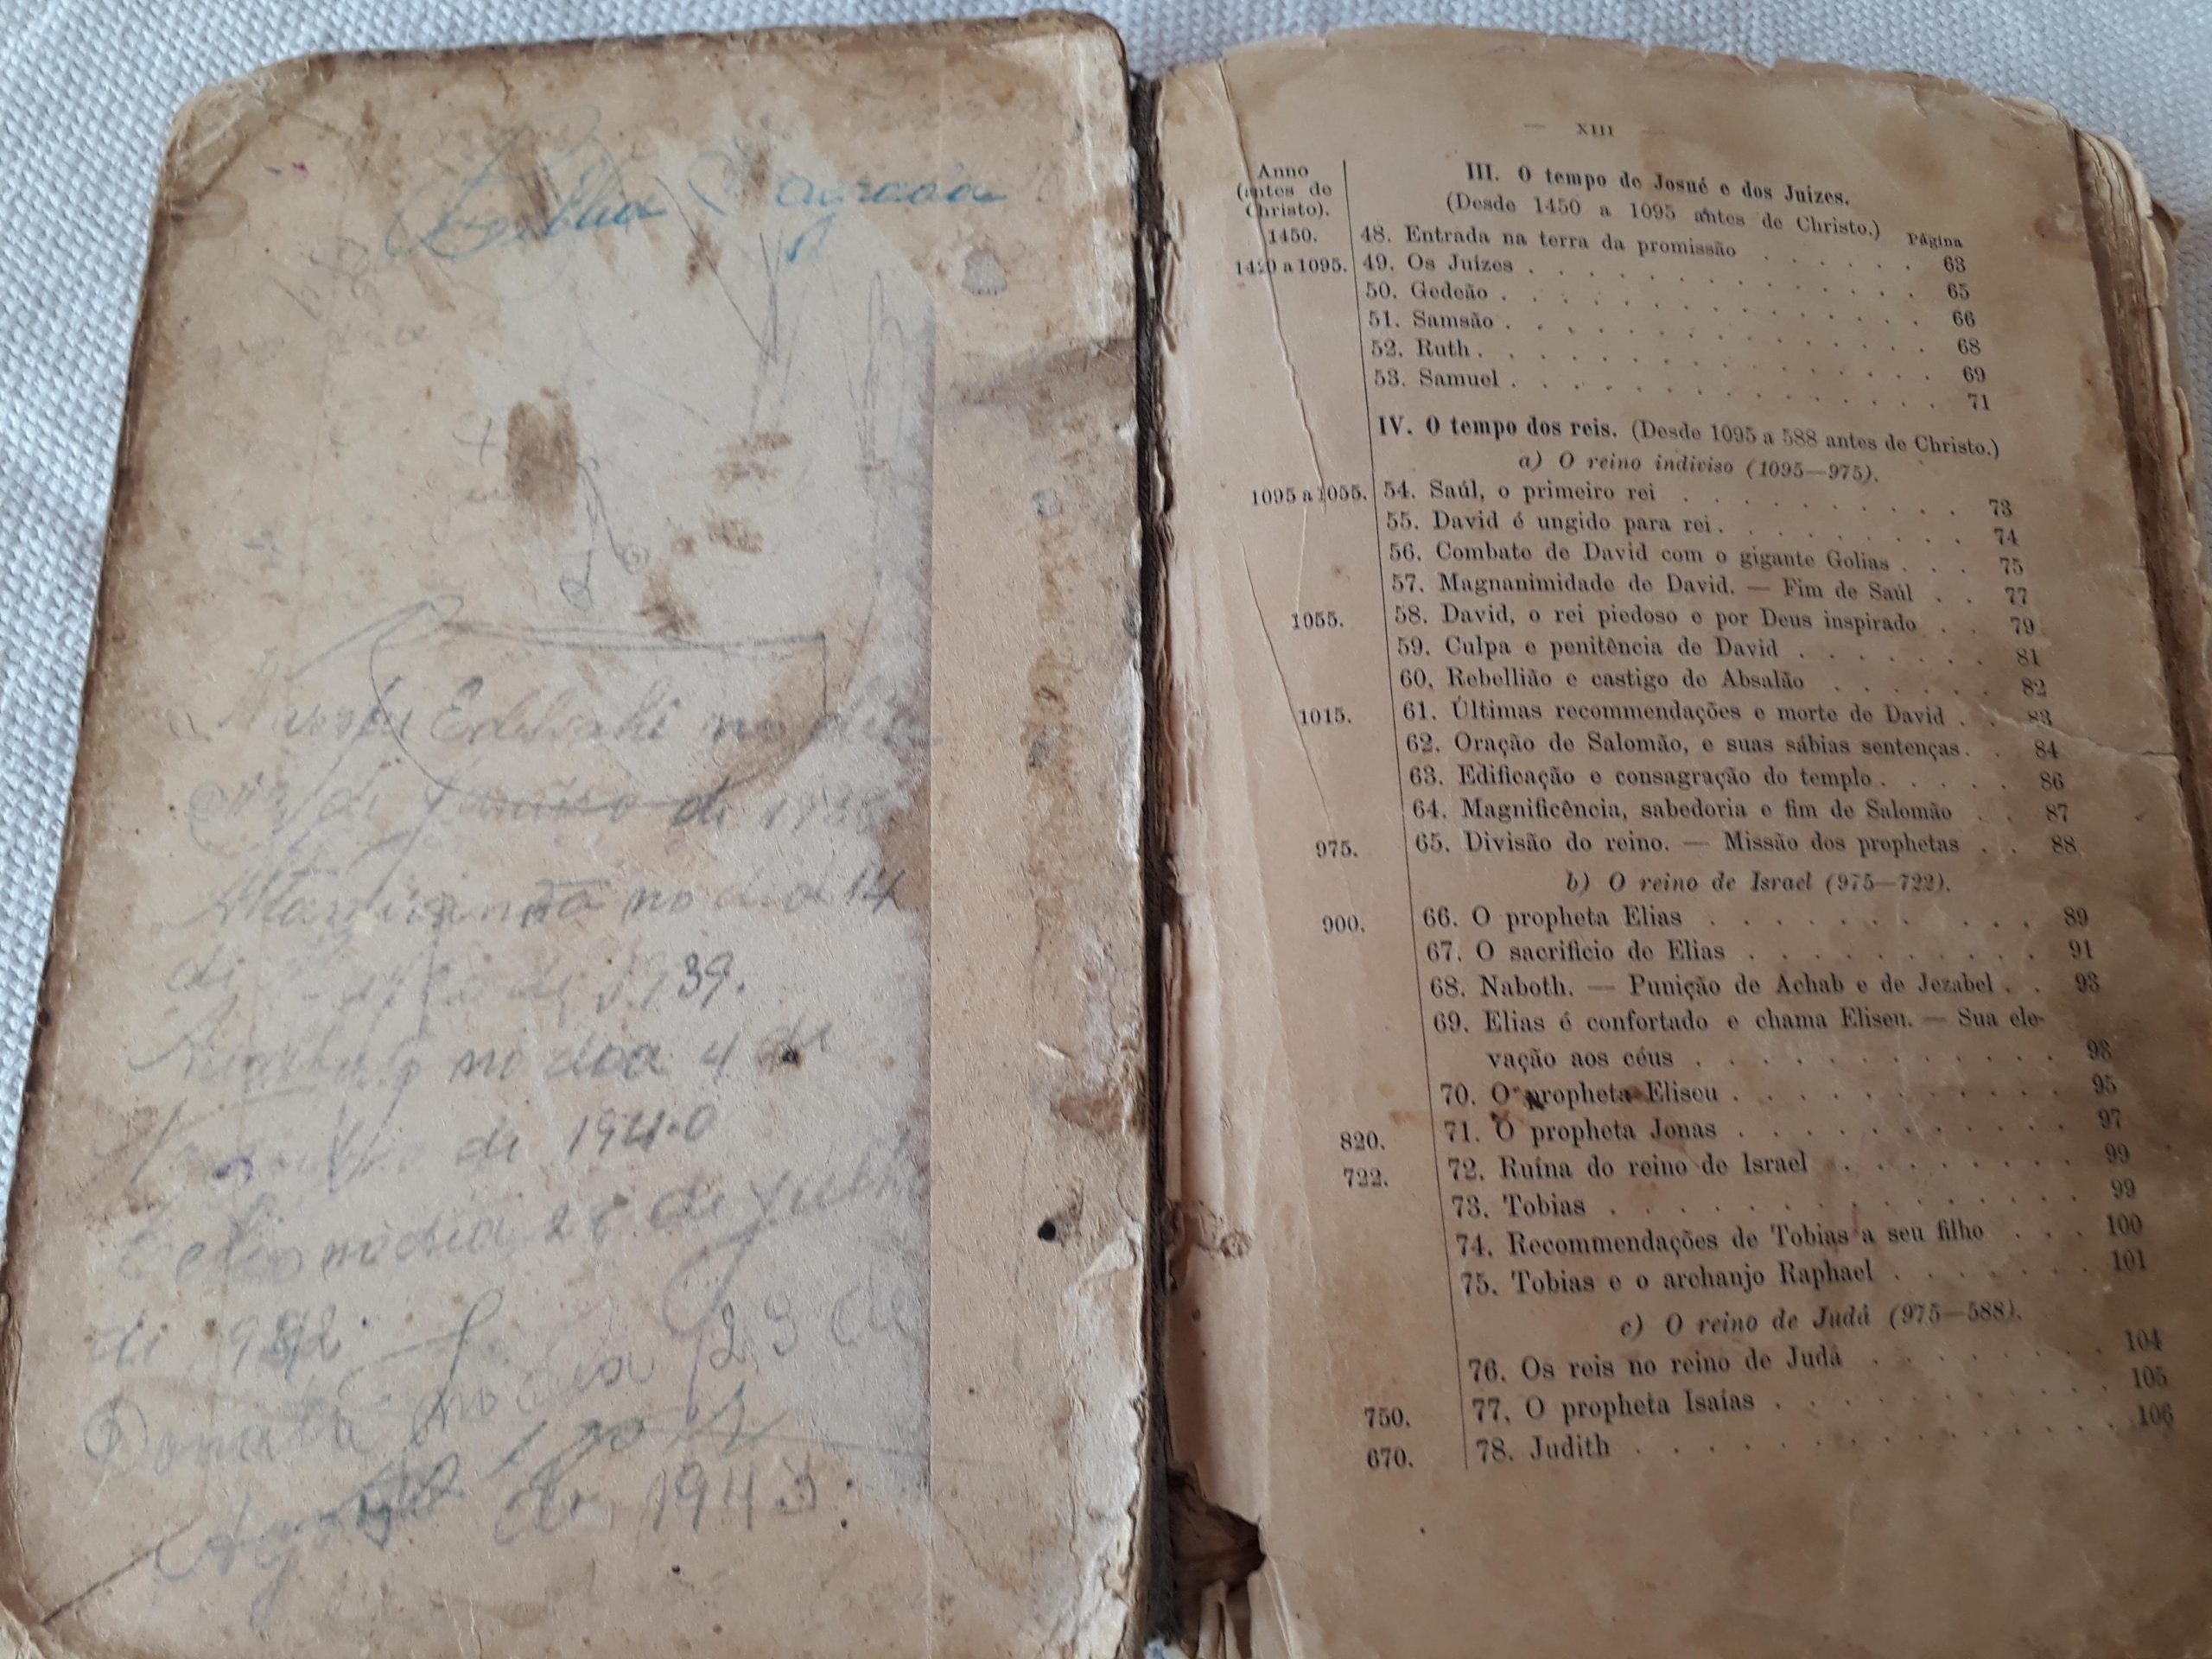 Biblia Sagrada
no dia
de Janeiro de 193
no dia 14
de de 1939.
no dia 4 de
de 1940
no dia 28 de Julho
di 1942
Donata no dia 23 de
Agosto de 1943.
— XIII —
Anno
(antes de
Christo).
III. O tempo de Josué e dos Juízes.
(Desde 1450 a 1095 antes de Christo.)
Página
1450. 48. Entrada na terra da promissão . . . . . . 63
1420 a 1095. 49. Os Juízes . . . . . . . . . . . . . 65
50. Gedeão . . . . . . . . . . . . . 66
51. Samsão . . . . . . . . . . . . . 68
52. Ruth . . . . . . . . . . . . . 69
53. Samuel . . . . . . . . . . . . . 71
IV. O tempo dos reis. (Desde 1095 a 588 antes de Christo.)
a) O reino indiviso (1095—975).
1095 a 1055. 54. Saúl, o primeiro rei . . . . . . . . . 73
55. David é ungido para rei . . . . . . . . 74
56. Combate de David com o gigante Golias . . . 75
57. Magnanimidade de David. — Fim de Saúl . . 77
1055. 58. David, o rei piedoso e por Deus inspirado . . 79
59. Culpa e penitência de David . . . . . . . 81
60. Rebellião e castigo de Absalão . . . . . . 82
1015. 61. Últimas recommendações e morte de David . . 83
62. Oração de Salomão, e suas sábias sentenças . . 84
63. Edificação e consagração do templo . . . . . 86
64. Magnificência, sabedoria e fim de Salomão . . 87
975. 65. Divisão do reino. — Missão dos prophetas . . 88
b) O reino de Israel (975—722).
900. 66. O propheta Elias . . . . . . . . . . 89
67. O sacrificio de Elias . . . . . . . . . 91
68. Naboth. — Punição de Achab e de Jezabel . . 93
69. Elias é confortado e chama Eliseu. — Sua ele-
vação aos céus . . . . . . . . . . . 93
70. O propheta Eliseu . . . . . . . . . . 95
820. 71. O propheta Jonas . . . . . . . . . . 97
722. 72. Ruína do reino de Israel . . . . . . . . 99
73. Tobias . . . . . . . . . . . . . 99
74. Recommendações de Tobias a seu filho . . . 100
75. Tobias e o archanjo Raphael . . . . . . . 101
c) O reino de Judá (975—588).
76. Os reis no reino de Judá . . . . . . . . 104
750. 77. O propheta Isaías . . . . . . . . . . 105
670. 78. Judith . . . . . . . . . . . . . 106